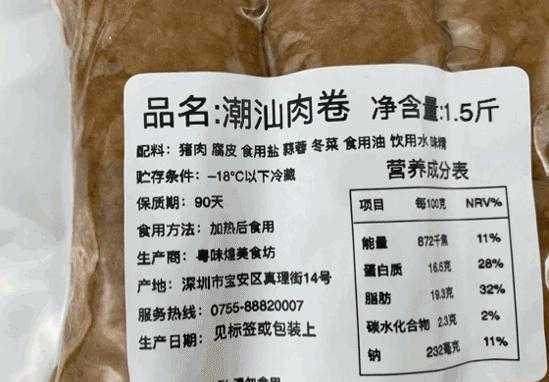 品名:潮汕肉卷 净含量:1.5斤
配料: 猪肉 腐皮 食用盐 蒜蓉 冬菜 食用油 饮用水 味精
贮存条件: -18°C以下冷藏
保质期: 90天
食用方法: 加热后食用
生产商: 粤味煌美食坊
产地: 深圳市宝安区真理街14号
服务热线: 0755-88820007
生产日期: 见标签或包装上
营养成分表
项目 每100克 NRV%
能量 872千焦 11%
蛋白质 16.6克 28%
脂肪 19.3克 32%
碳水化合物 2.3克 2%
钠 232毫克 11%